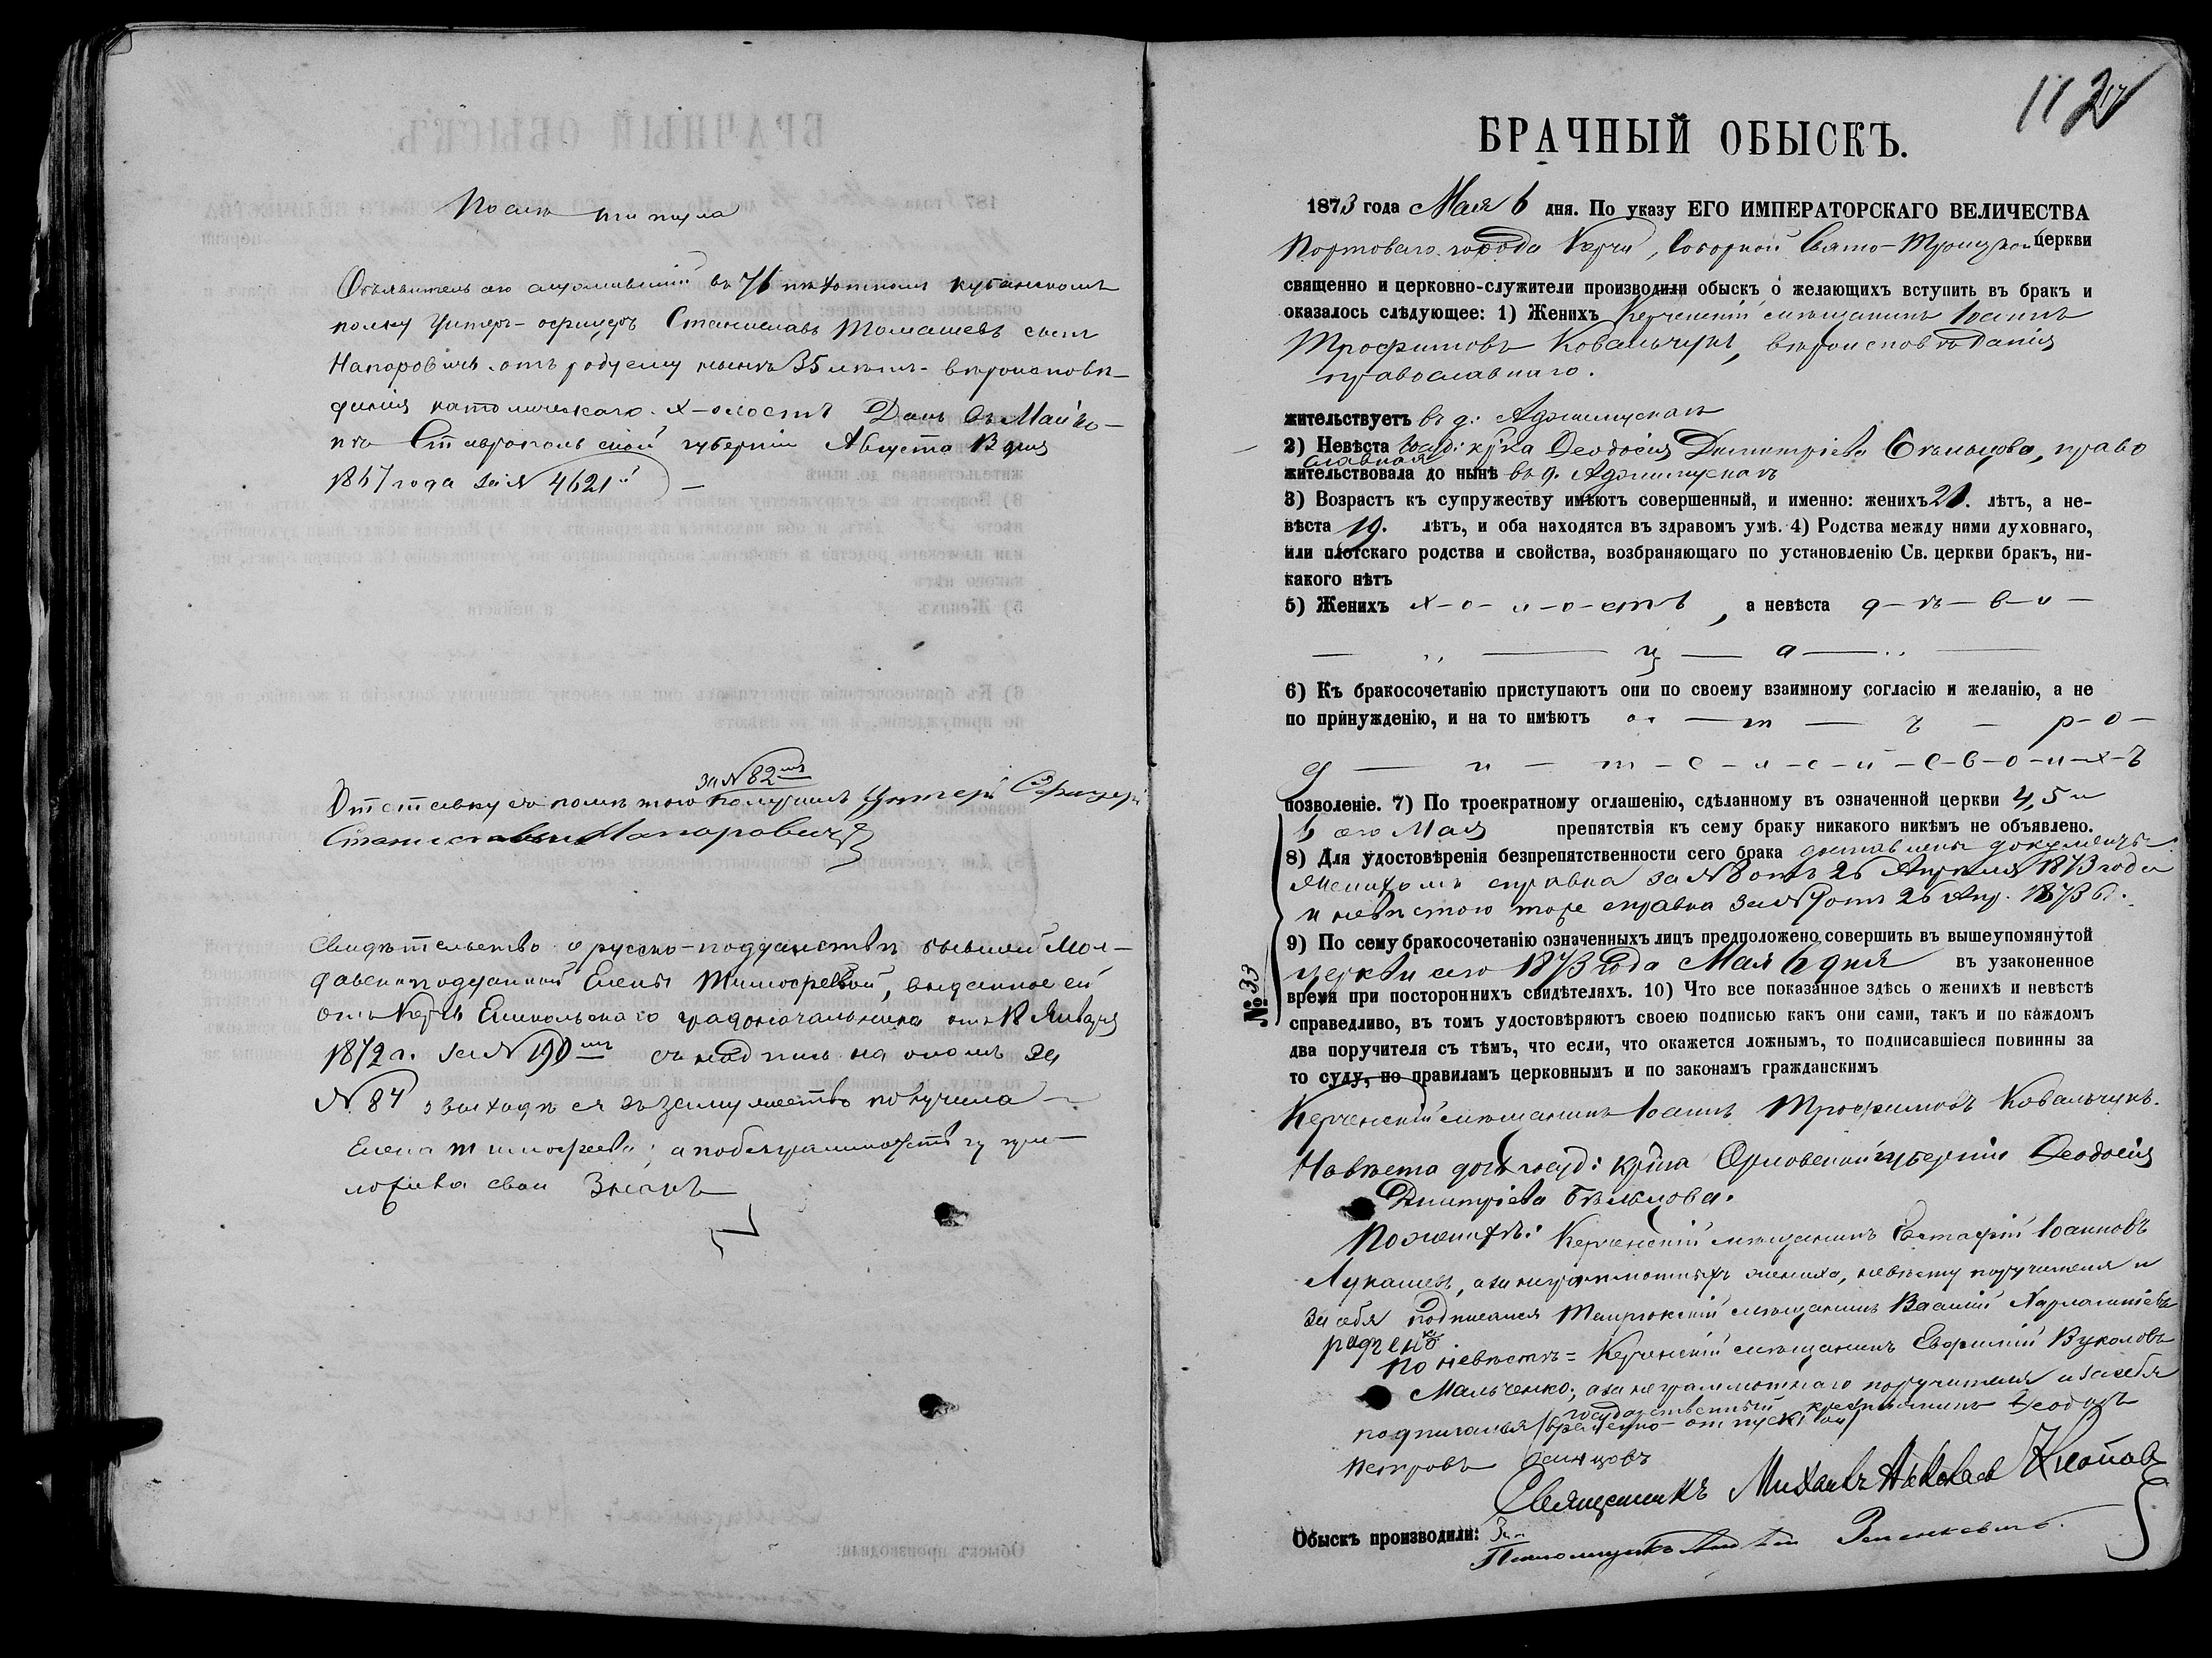 Объявитель сего служившій въ 76 пѣхотномъ Кубанскомъ
полку Унтеръ-офицеръ Станиславъ Томашевъ сынъ
Напоровичъ отъ роду ему нынѣ 35 лѣтъ вѣроисповѣ-
данія католическаго. х-олостъ Данъ въ Майко-
пѣ Ставропольской губерніи Августа 13 дня
1867 года за № 4621
за № 82мъ
Отставку за получилъ Унтеръ Офицеръ
Станиславъ Напоровичъ
Свидѣтельство о русско-подданствѣ бывшей Мол-
давскоподданной Елены Тимофеевой, выданное ей
отъ Керчь Еникольскаго градоначальника отъ 18 Января
1872 г. за № 190мъ съ надпись на ономъ за
№ 84 о выходѣ ея въ замужество получила
Елена Тимофеева, а по безграмотству при-
ложила свои Знакъ
112
БРАЧНЫЙ ОБЫСКЪ.
1873 года Мая 6 дня. По указу ЕГО ИМПЕРАТОРСКАГО ВЕЛИЧЕСТВА
Портоваго города Керчи, Соборной Свято-Троицкой церкви
священно и церковно-служители производили обыскъ о желающихъ вступить въ бракъ и
оказалось слѣдующее: 1) Женихъ Керченскій мѣщанинъ Іоаннъ
Трофимовъ Ковальчукъ, вѣроисповѣданія
православнаго.
жительствуетъ въ д. Аджимушкаѣ
2) Невѣста госуд: кр̃ка Ѳеодосія Димитріева Бѣльцова, право
славная
жительствовала до нынѣ въ д. Аджимушкаѣ
3) Возрастъ къ супружеству имѣютъ совершенный, и именно: женихъ 21. лѣтъ, а не-
вѣста 19. лѣтъ, и оба находятся въ здравомъ умѣ. 4) Родства между ними духовнаго,
или плотскаго родства и свойства, возбраняющаго по установленію Св. церкви бракъ, ни-
какого нѣтъ
5) Женихъ х-о-л-о-стъ, а невѣста д-ѣ-в-и-
— „ — ц — а — „ —
6) Къ бракосочетанію приступаютъ они по своему взаимному согласію и желанію, а не
по принужденію, и на то имѣютъ о — т — ъ — р-о-
д — и — т-е-л-е-й-с-в-о-и-х-ъ
позволеніе. 7) По троекратному оглашенію, сдѣланному въ означенной церкви 4, 5 и
6 сего Мая препятствія къ сему браку никакого никѣмъ не объявлено.
8) Для удостовѣренія безпрепятственности сего брака доставлены документы
женихомъ справка за № 8 отъ 26 Апрѣля 1873 года
и невѣстою тоже справка за № 9 отъ 26 Апр. 1873 г.
9) По сему бракосочетанію означенныхъ лицъ предположено совершить въ вышеупомянутой
церкви сего 1873 года Мая 6 дня въ узаконенное
№ 33
время при постороннихъ свидѣтеляхъ. 10) Что все показанное здѣсь о женихѣ и невѣстѣ
справедливо, въ томъ удостовѣряютъ своею подписью какъ они сами, такъ и по каждомъ
два поручителя съ тѣмъ, что если, что окажется ложнымъ, то подписавшіеся повинны за
то суду, по правиламъ церковнымъ и по законамъ гражданскимъ
Керченскій мѣщанинъ Іоаннъ Трофимовъ Ковальчукъ.
Невѣста дочь госуд: кр̃на Орловской губерніи Ѳеодосія
Димитріева Бѣльцова.
По женихѣ: Керченскій мѣщанинъ Евстафій Іоанновъ
Лукашевъ, а за неграмотныхъ жениха, невѣсту поручителя и
за себя подписался Темрюкскій мѣщанинъ Василій
По невѣстѣ = Керченскій мѣщанинъ Евфимій Вуколовъ
Мальченко, а за неграмотнаго поручителя и за себя
подписался (временно-отпускной) государственный крестьянинъ Ѳеодоръ
Петровъ
Священникъ Михаилъ
Обыскъ производили: